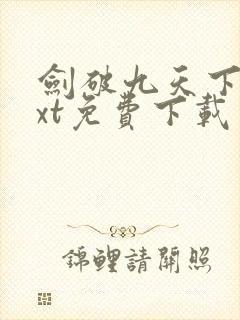 劍破九天下
xt免費下載
錦鯉請開照